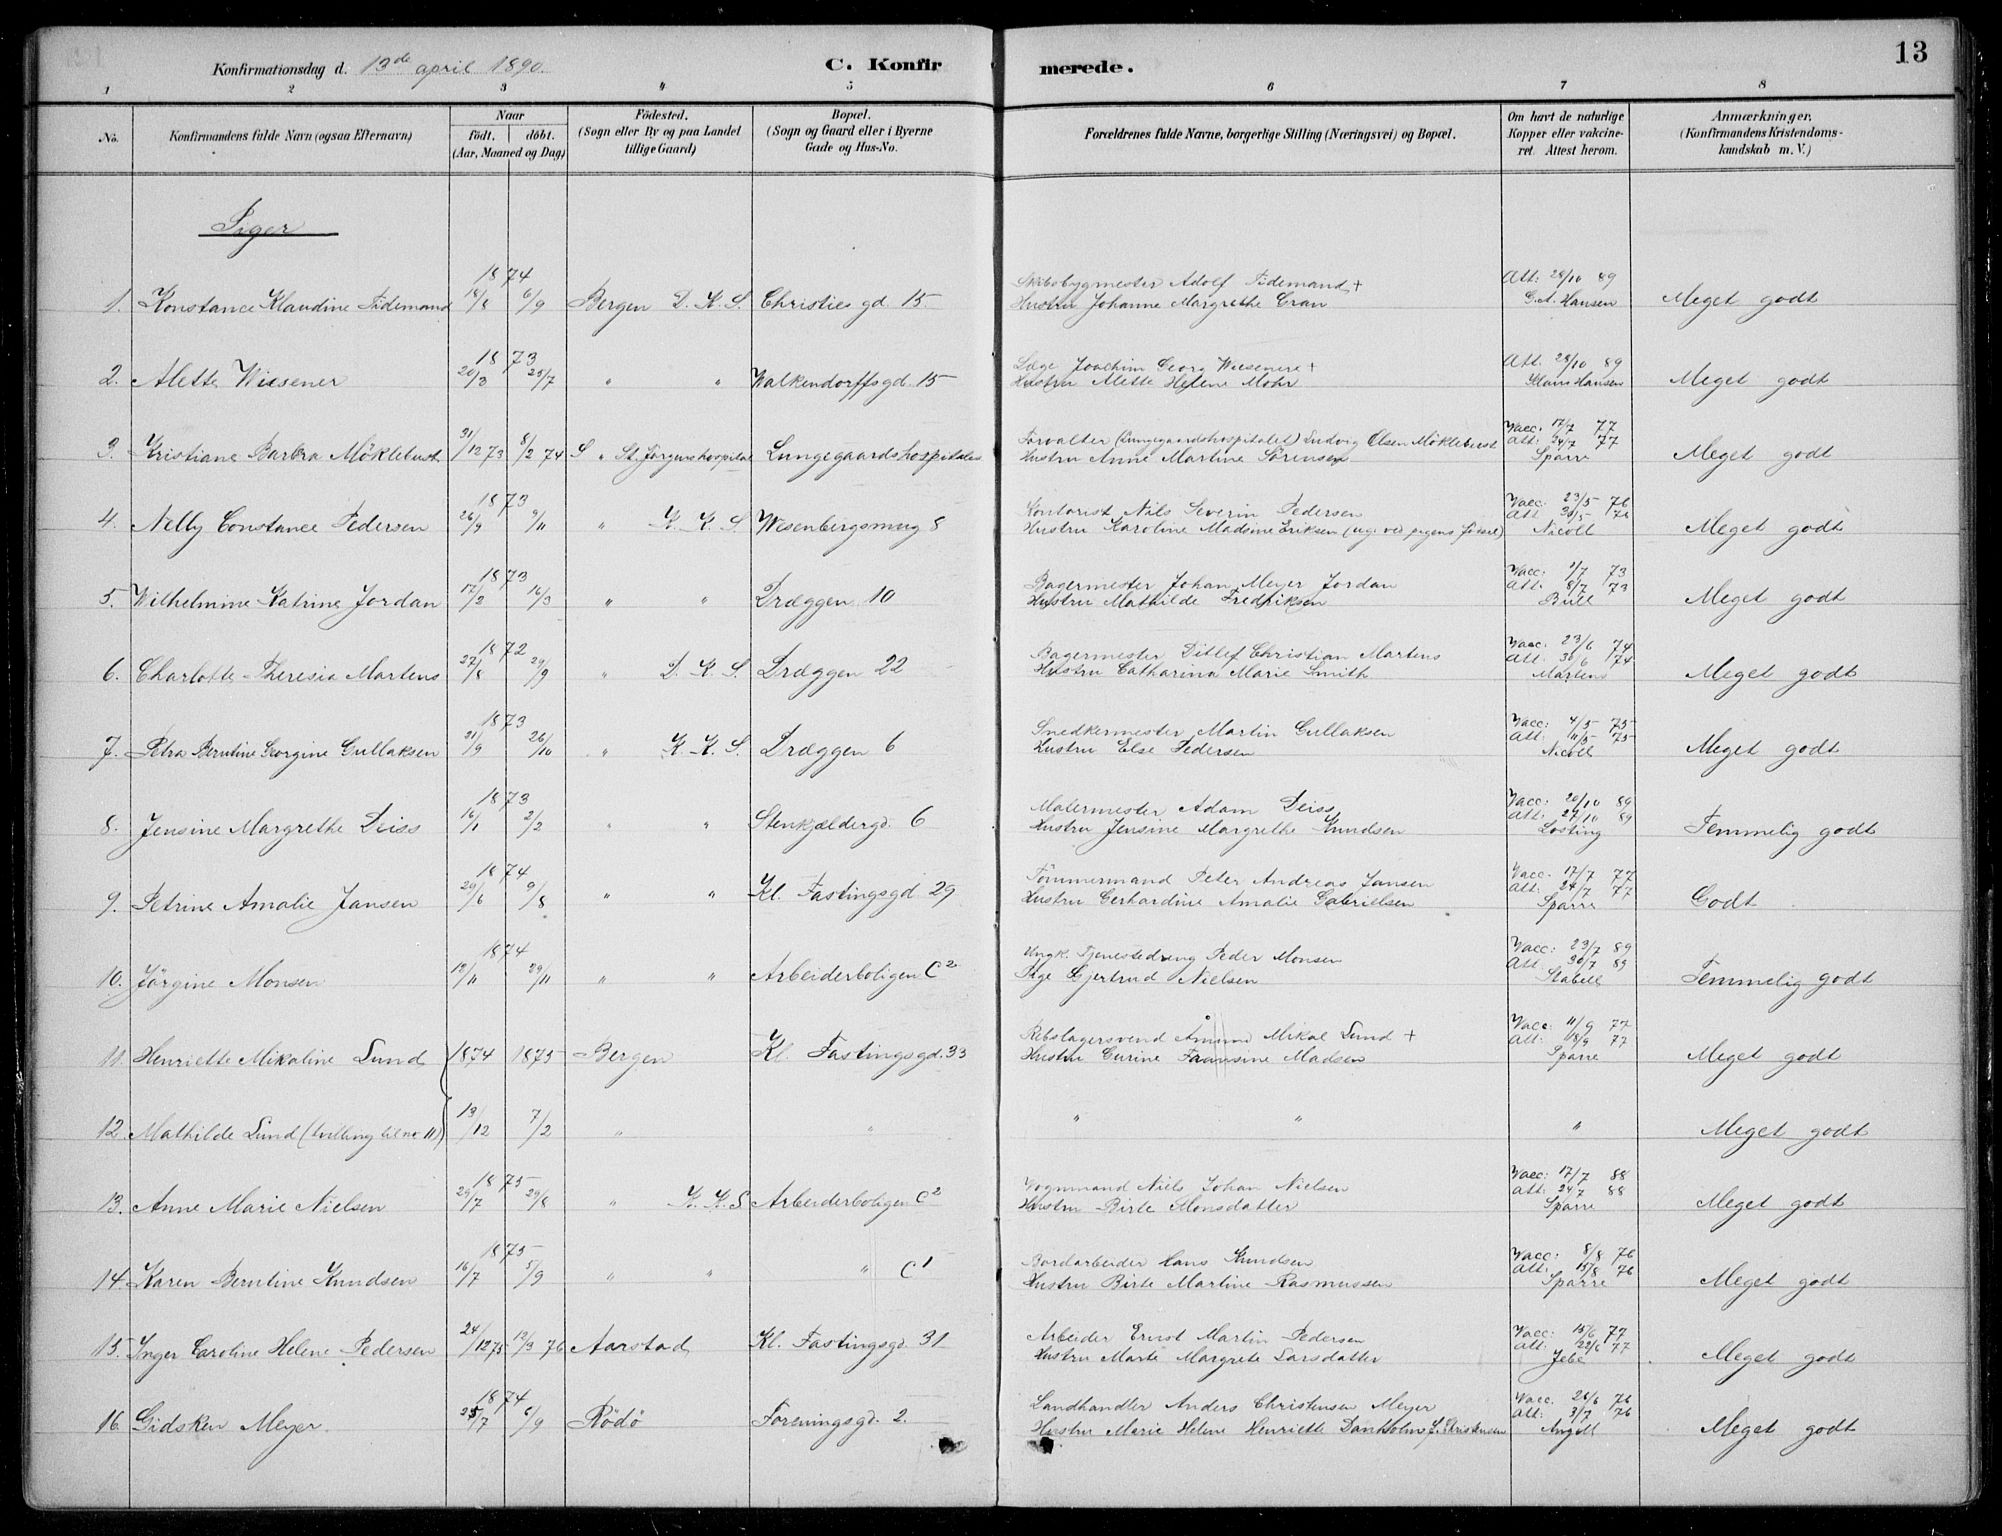 13
Konfirmationsdag d. 13de april 1890.
C. Konfirmerede.
1 2 3 4 5 6 7 8
No.
Konfirmandens fulde Navn (ogsaa Efternavn)
Naar
födt. döbt.
(Aar, Maaned og Dag)
Födested.
(Sogn eller By og paa Landet
tillige Gaard)
Bopæl.
(Sogn og Gaard eller i Byerne
Gade og Hus-No.
Forældrenes fulde Navne, borgerlige Stilling (Næringsvei) og Bopæl.
Om havt de naturlige
Kopper eller vakcine-
ret. Attest herom.
Anmærkninger,
(Konfirmandens Kristendoms-
kundskab m. V.)
Piger
1874
1. Konstance Klaudine Tidemand 18/8 6/9 Bergen D. K. S. Christies gd. 15
Skibsbygmester Adolf Tidemand +
Hustru Johanne Margrethe Gran
Att: 28/10 89
G. A. Hansen
Meget godt
1873
2. Alette Wiesener 20/3 25/7 " " Walkendorffsgd. 15
Læge Joachim Georg Wiesener +
Hustru Alette Helene Mohr
Att: 28/10 89
Klaus Hansen
Meget godt
3. Kristiane Barbra Möklebust 31/12 73 8/2 74 S " St. Jörgenshospital Lungegaardshospitalet
Forvalter (Lungegaardshospitalet) Ludvig Olsen Möklebust
Hustru Anne Martine Sörensen
Vacc. 17/7 77
Att: 24/7 77
Sparre
Meget godt
1873
4. Nelly Constance Pedersen 26/9 9/11 " K. K. S Wesenbergsmug 8
Kontorist Nils Severin Pedersen
Hustru Karoline Madsine Eriksen (ug: ved pigens födsel)
Vacc: 23/5 76
Att 30/5 76
Nicoll
Meget godt
1873
5. Wilhelmine Katrine Jordan 17/2 16/3 " " Dræggen 10
Bagermester Johan Meyer Jordan
Hustru Mathilde Fredriksen
Vacc: 1/7 73
Att: 8/7 73
Bull
Meget godt
1872
6. Charlotte Theresia Martens 27/8 29/9 " D. K. S. Dræggen 22
Bagermester Ditlef Christian Martens
Hustru Catharina Marie Smith
Vacc: 23/6 74
Att: 30/6 74
Martens
Meget godt
1873
7. Petra Berntine Georgine Gullaksen 21/9 26/10 " K. K. S. Dræggen 6
Snedkermester Martin Gullaksen
Hustru Else Pedersen
Vacc: 4/5 75
Att: 11/5 75
Nicoll
Meget godt
1873
8. Jensine Margrethe Deiss 16/1 2/2 " " Stenkjældergd. 6
Malermester Adam Deiss
Hustru Jensine Margrethe Knudsen
Vacc: 20/10 89
Att: 27/10 89
Losting
Temmelig godt
1874
9. Petrine Amalie Jansen 29/6 9/8 " " Kl. Fastingsgd 29
Tömmermand Peter Andreas Jansen
Hustru Gerhardine Amalie Gabrielsen
Vacc. 17/7 77
Att: 24/7 77
Sparre
Godt
1874
10. Jörgine Monsen 12/11 29/11 " " Arbeiderboligen C 2
Ungk. Tjenestedreng Peder Monsen
Pige Gjertrud Nielsen
Vacc: 23/7 89
Att: 30/7 89
Stabell
Temmelig godt
11. Henriette Mikaline Lund 1874 1875 Bergen Kl. Fastingsgd. 33
Rebslagersvend Mikal Lund +
Hustru Fransine Madsen
Vacc: 11/9 77
Att: 18/9 77
Sparre
Meget godt
12. Mathilde Lund (tvilling til no 11) 13/12 7/2 " "
" " "
Meget godt
1875
13. Anne Marie Nielsen 29/7 29/8 " K. K. S Arbeiderboligen C 2
Vognmand Niels Johan Nielsen
Hustru Birte Monsdatter
Vacc: 17/7 88
Att: 24/7 88
Sparre
Meget godt
1875
14. Karen Berntine Knudsen 16/7 5/9 " " " C 1
Bordarbeider Hans Knudsen
Hustru Birte Martine Rasmussen
Vacc: 8/8 76
Att: 15/8 76
Sparre
Meget godt
15. Inger Caroline Helene Pedersen 24/12 75 12/3 76 Aarstad Kl. Fastingsgd. 31
Arbeider Ernst Martin Pedersen
Hustru Marte Margrete Larsdatter
Vacc: 15/6 77
Att: 22/6 77
Jebe
Meget godt
1874
16. Gidsken Meyer. 25/7 6/9 Rödö Foreningsgd. 2.
Landhandler Anders Christensen Meyer
Hustru Marie Helene Henriette f. Christensen
Vacc. 26/6 76
Att: 3/7 76
Angell
Meget godt